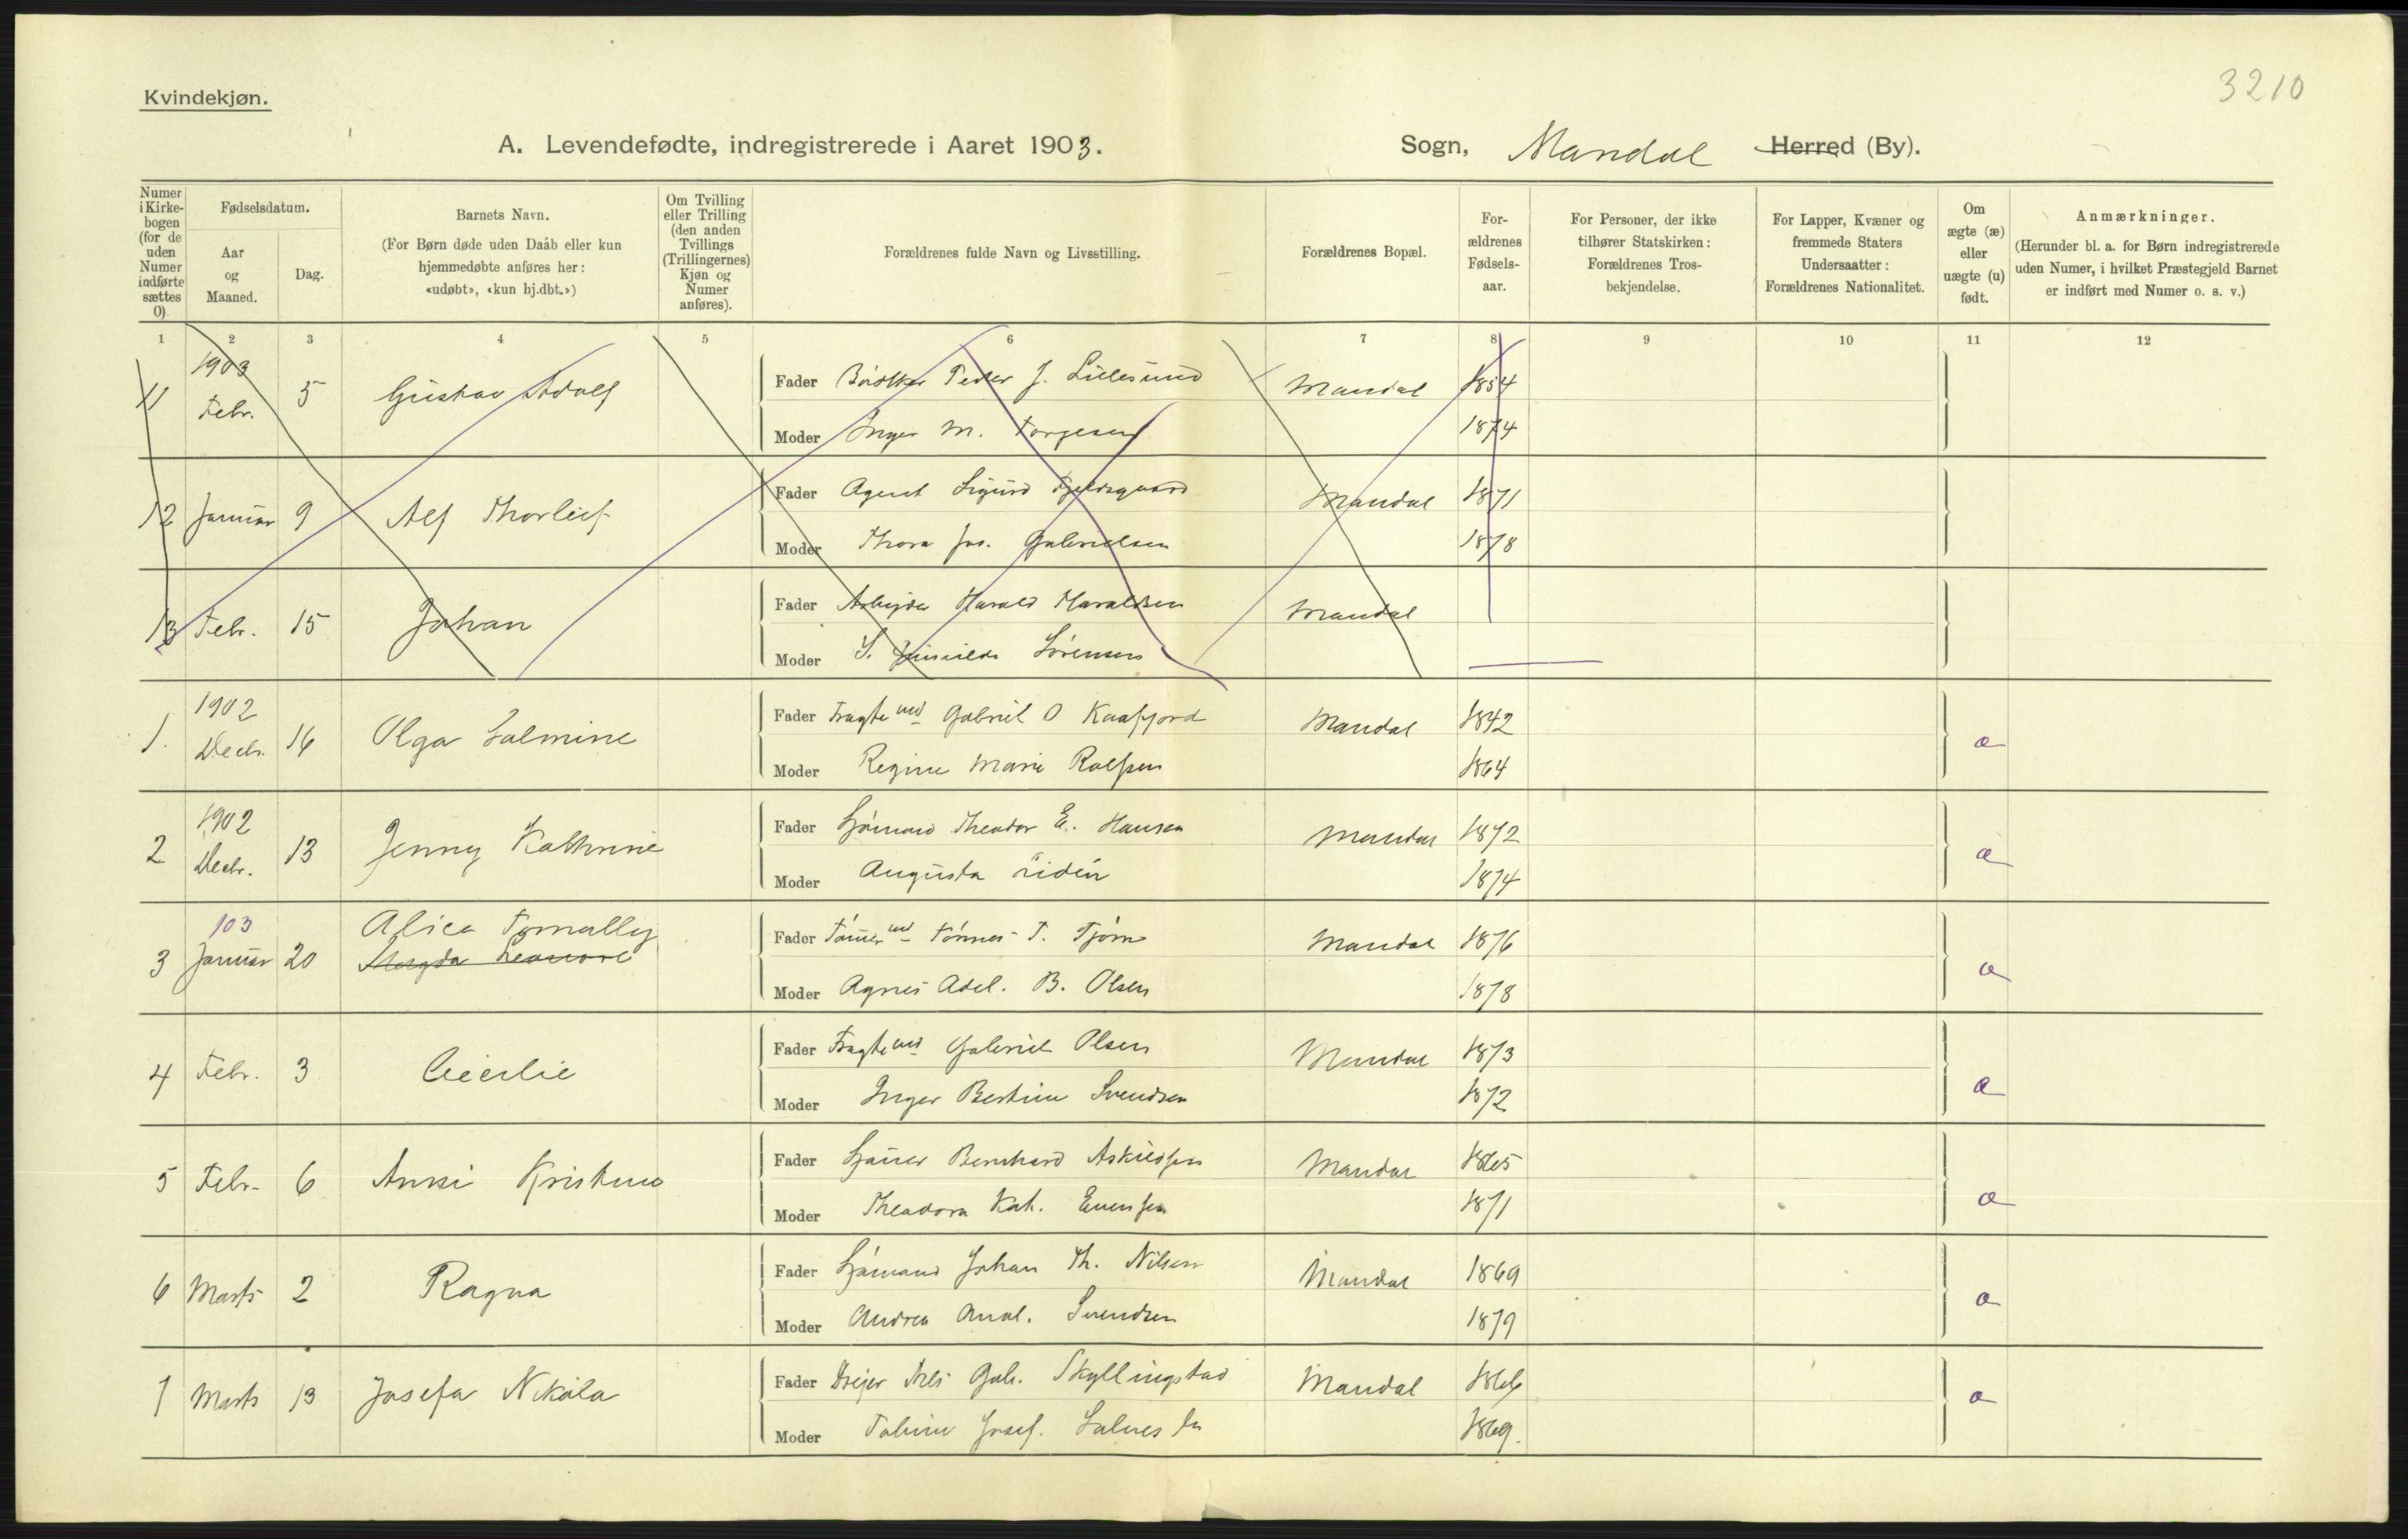 3210
Kvindekjøn.
A. Levendefødte, indregistrerede i Aaret 1903.
Sogn, Mandal Herred (By).
Numer i Kirkebogen (for de uden Numer indførte sættes 0)
Fødselsdatum.
Aar og Maaned.
Dag.
Barnets Navn.
(For Børn døde uden Daåb eller kun hjemmedøbte anføres her: «udøbt», «kun hj.dbt.»)
Om Tvilling eller Trilling (den anden Tvillings (Trillingernes) Kjøn og Numer anføres).
Forældrenes fulde Navn og Livsstilling.
Forældrenes Bopæl.
For-
ældrenes
Fødsels-
aar.
For Personer, der ikke tilhører Statskirken: Forældrenes Tros-
bekjendelse.
For Lapper, Kvæner og fremmede Staters Undersaatter: Forældrenes Nationalitet.
Om ægte (æ) eller uægte (u) født.
Anmærkninger.
(Herunder bl. a. for Børn indregistrerede uden Numer, i hvilket Præstegjeld Barnet er indført med Numer o. s. v.)
1 2 3 4 5 6 7 8 9 10 11 12
11 1903 Febr. 5 Gustav Adolf
Fader Bødtker Peder J. Lillesund Mandal 1854
Moder Inger M. Torgesen 1874
12 Januar 9 Alf Thorleif
Fader Agent Sigurd Fjeldsgaard Mandal 1871
Moder Thora Jos. Gabrielsen 1878
13 Febr. 15 Johan
Fader Arbejder Harald Haraldsen Mandal
Moder S. Gunvilda Sørensen
1. 1902 Decbr. 16 Olga Salmine
Fader Fragtemd Gabriel O Kaafjord Mandal 1842 æ
Moder Regine Marie Rolfsen 1864
2 1902 Decbr. 13 Jenny Kathrine
Fader Sjømand Theodor E. Hansen Mandal 1872 æ
Moder Augusta Lidén 1874
3 103 Januar 20 Alice Tomally
Magda Leonore
Fader Tømmermd Tønnes T. Tjøm Mandal 1876 æ
Moder Agnes Adel. B. Olsen 1878
4 Febr. 3 Cecilie
Fader Fragtemd Gabriel Olsen Mandal 1873 æ
Moder Inger Bertine Svendsen 1872
5 Febr. 6 Anni Kristine
Fader Bernhard Askildsen Mandal 1865 æ
Moder Theodora Kat. Evensen 1871
6 Marts 2 Ragna
Fader Sjømand Johan Th. Nilsen Mandal 1869 æ
Moder Andrea Amal. Svendsen 1879
7 Marts 13 Josefa Nikola
Fader Drejer Nils Gab. Skyllingstad Mandal 1866 æ
Moder Tobine Josef. Salvesen 1869.